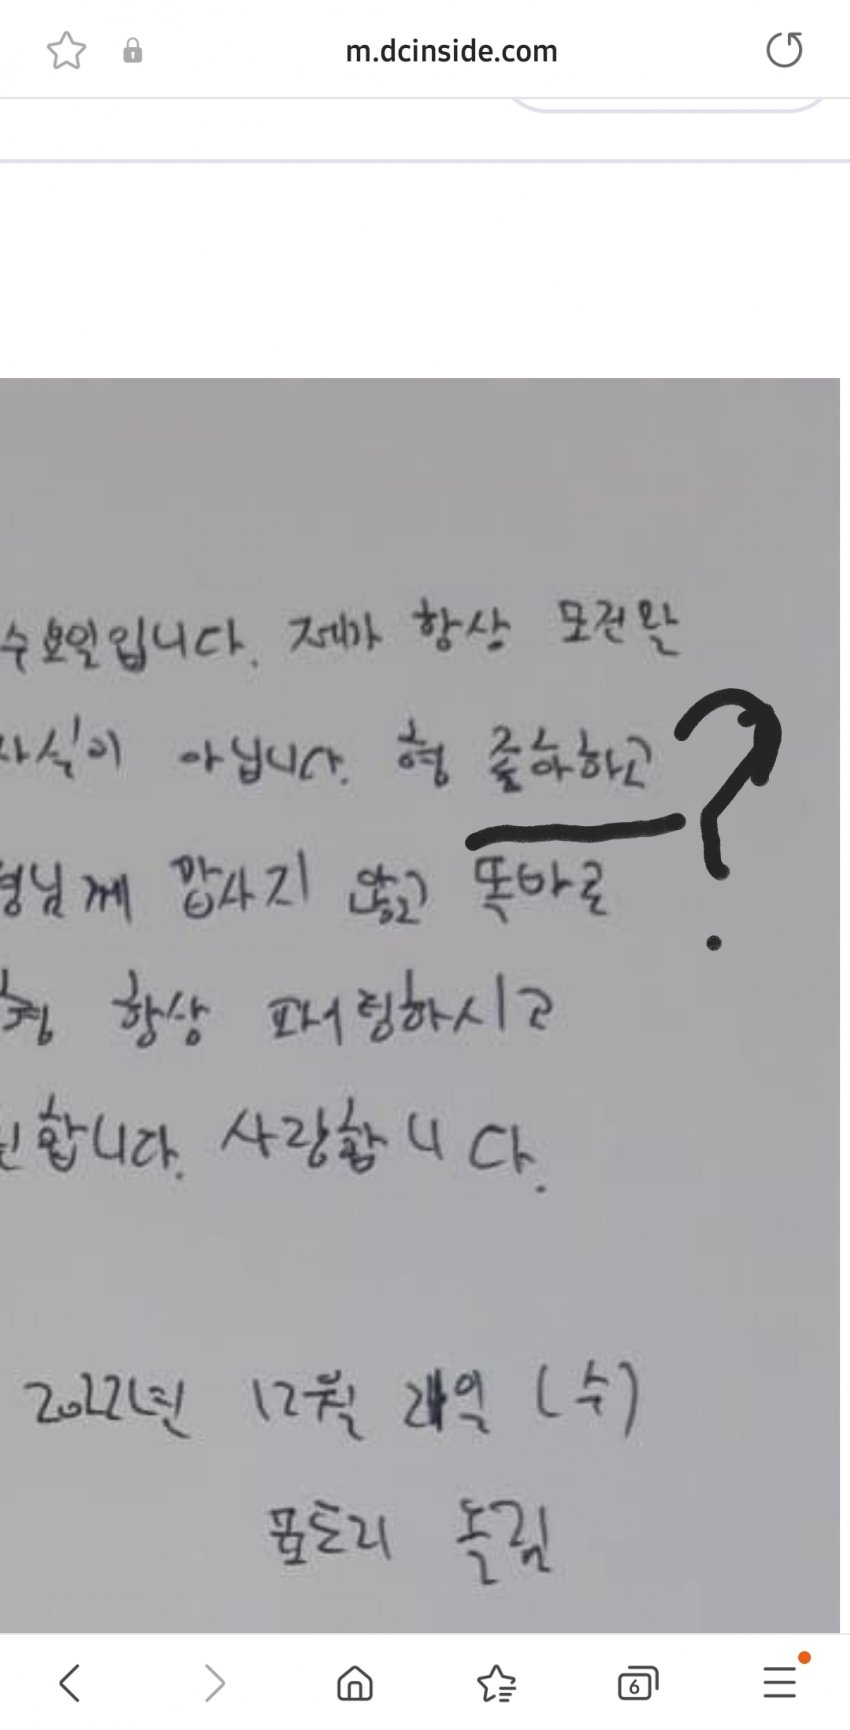 m.dcinside.com
수요일입니다. 제가 항상 모건완
사식이 아닙니다. 형 좋아하고
?
형님께 깝사지 않고 똑바로
항상 패링하시고
합니다. 사랑합니다.
2022년 12월 21일 (수)
올림
6